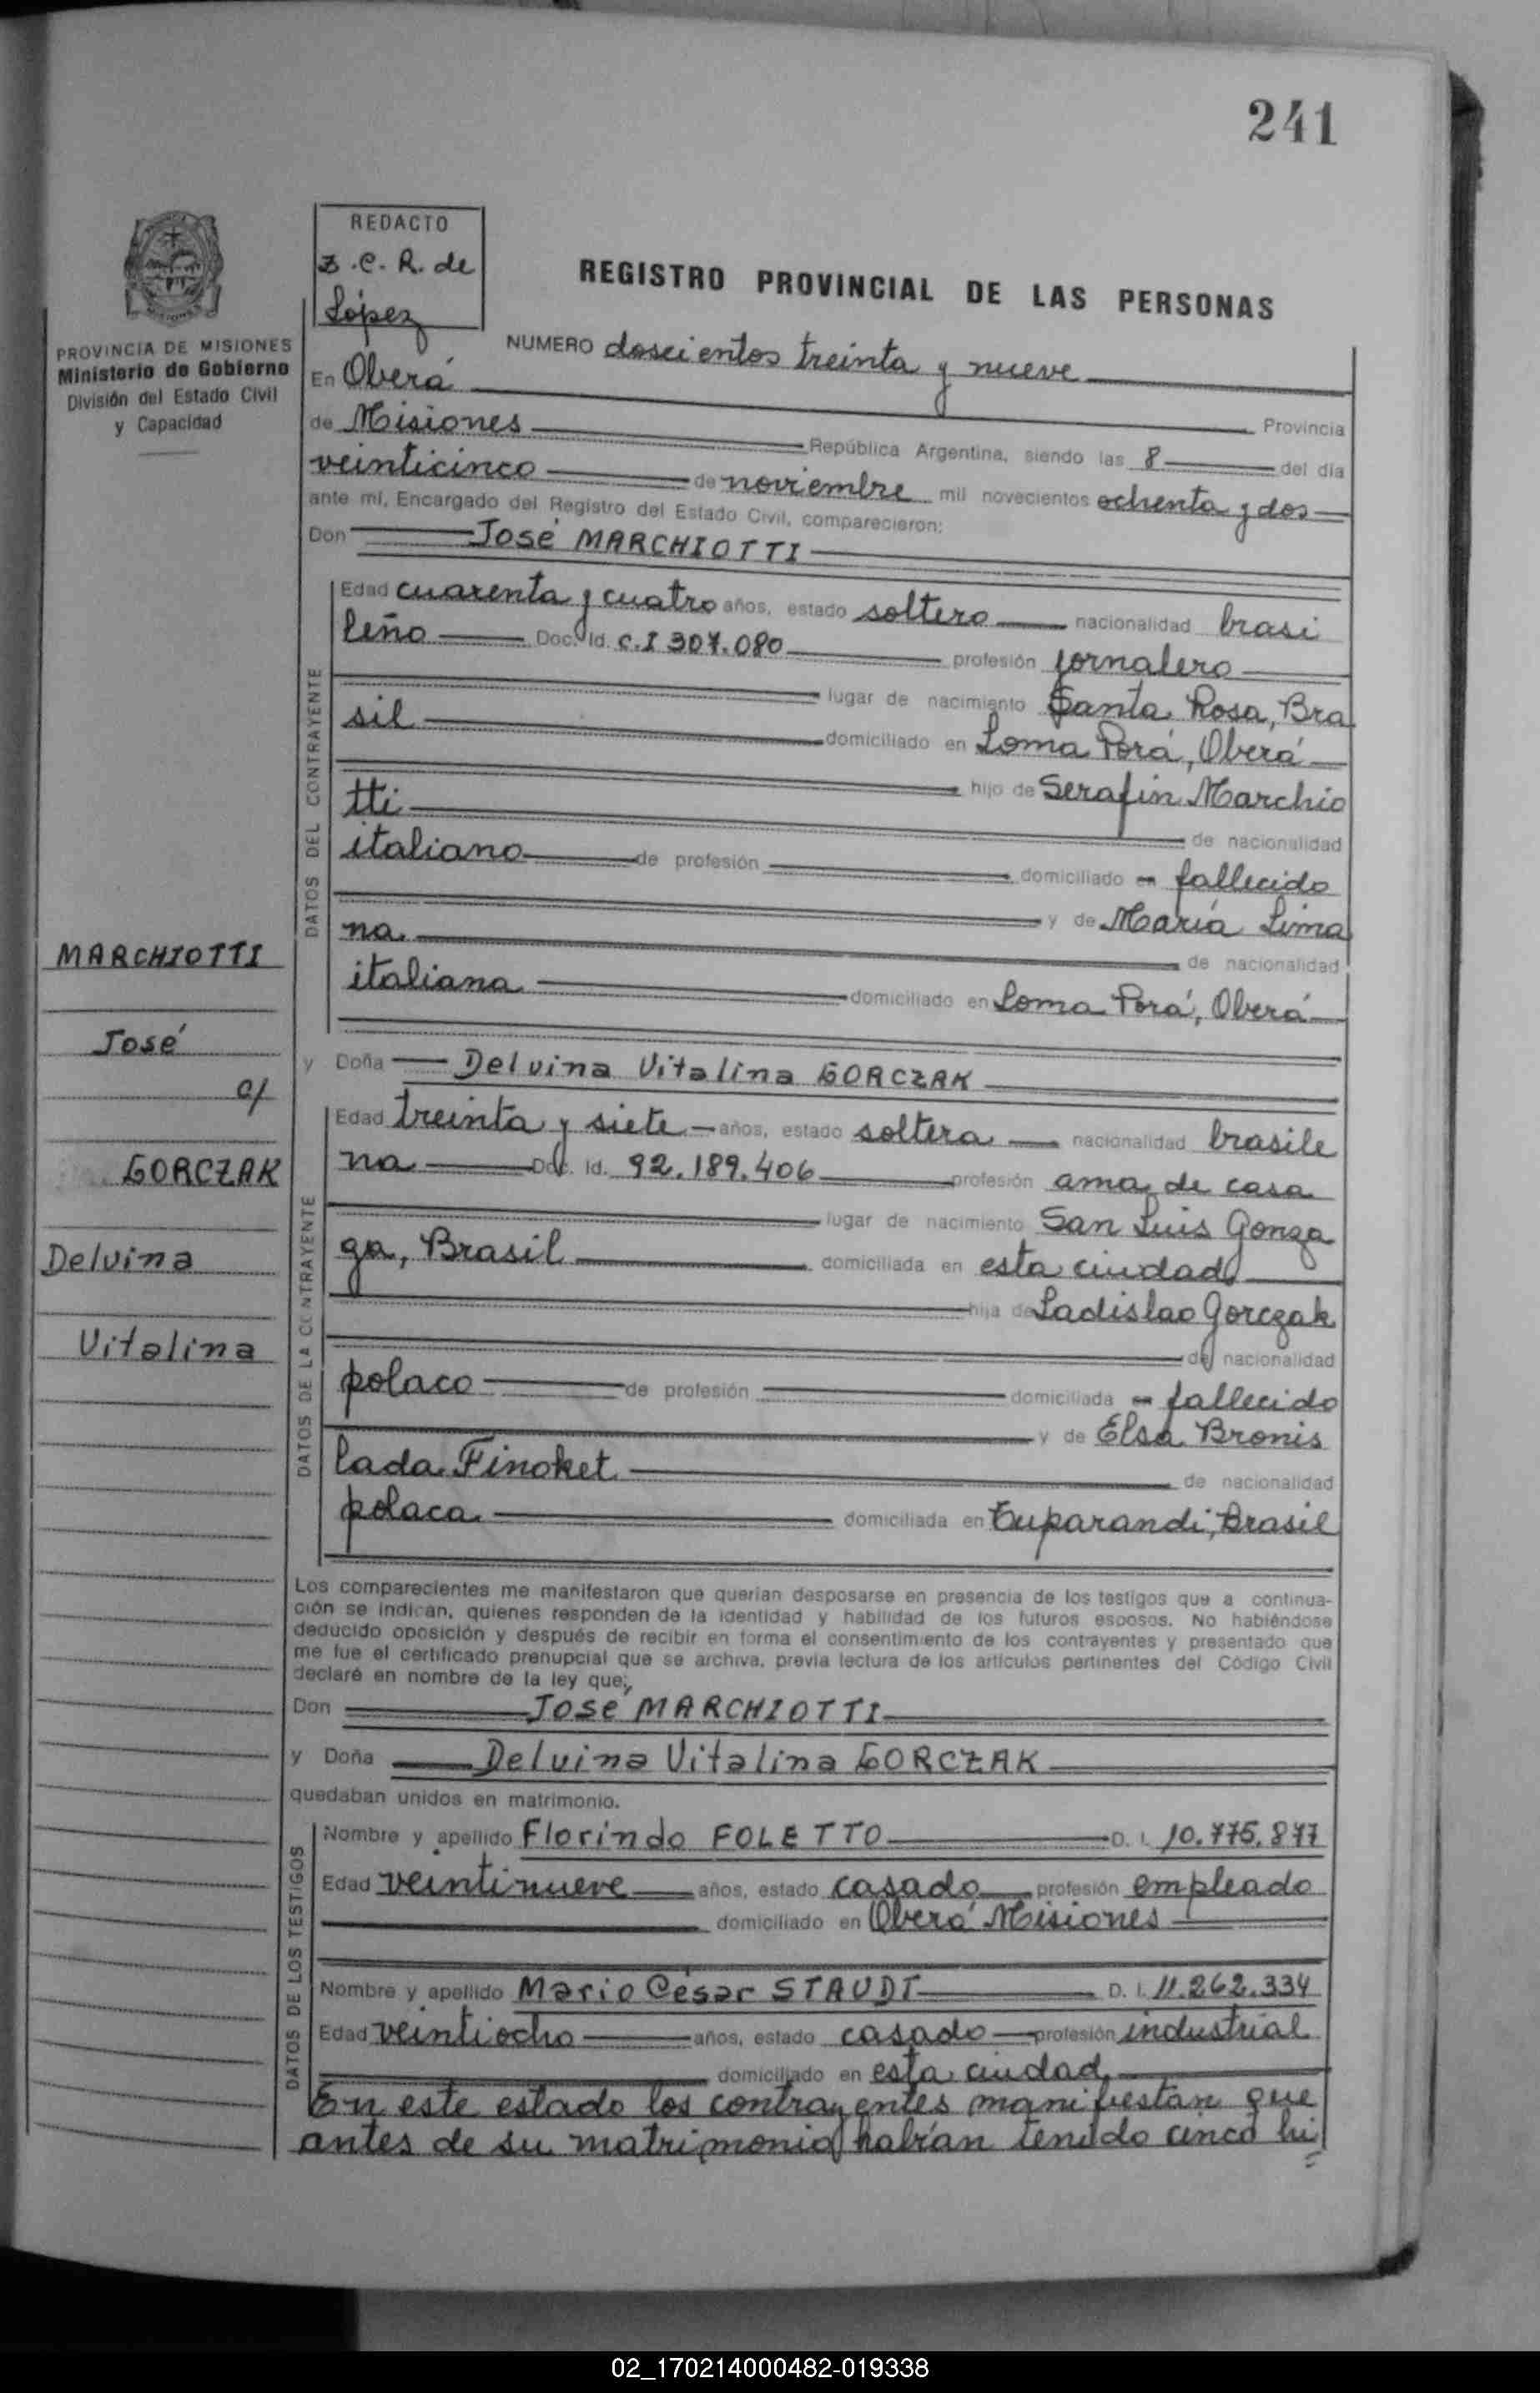 241
REDACTO
Z.C.R. de
López
REGISTRO PROVINCIAL DE LAS PERSONAS
PROVINCIA DE MISIONES
Ministerio de Gobierno
División del Estado Civil
y Capacidad
NUMERO doscientos treinta y nueve
En Oberá
Provincia
de Misiones República Argentina, siendo las 8 del día
veinticinco de noviembre mil novecientos ochenta y dos
ante mí, Encargado del Registro del Estado Civil, comparecieron:
Don José MARCHIOTTI
DATOS DEL CONTRAYENTE
Edad cuarenta y cuatro años, estado soltero nacionalidad brasi
leño Doc. Id. C.I 307.080 profesión jornalero
lugar de nacimiento Santa Rosa, Bra
sil domiciliado en Loma Porá, Oberá
hijo de Serafin Marchio
tti de nacionalidad
italiano de profesión domiciliado en fallecido
y de María Lima
na de nacionalidad
italiana domiciliado en Loma Porá, Oberá
MARCHIOTTI
José
c/
GORCZAK
Delvina
Vitalina
y Doña Delvina Vitalina GORCZAK
DATOS DE LA CONTRAYENTE
Edad treinta y siete años, estado soltera nacionalidad brasile
na Doc. Id. 92.189.406 profesión ama de casa
lugar de nacimiento San Luis Gonza
ga, Brasil domiciliada en esta ciudad
hija de Ladislao Gorczak
de nacionalidad
polaco de profesión domiciliada fallecido
y de Elsa Bronis
lada Finoket de nacionalidad
polaca domiciliada en Tuparandi, Brasil
Los comparecientes me manifestaron que querían desposarse en presencia de los testigos que a continua-
ción se indican, quienes responden de la identidad y habilidad de los futuros esposos. No habiéndose
deducido oposición y después de recibir en forma el consentimiento de los contrayentes y presentado que
me fue el certificado prenupcial que se archiva, previa lectura de los artículos pertinentes del Código Civil
declaré en nombre de la ley que;
Don José MARCHIOTTI
y Doña Delvina Vitalina GORCZAK
quedaban unidos en matrimonio.
DATOS DE LOS TESTIGOS
Nombre y apellido Florindo FOLETTO D. I. 10.775.877
Edad veintinueve años, estado casado profesión empleado
domiciliado en Oberá Misiones
Nombre y apellido Mario César STAUDT D. I. 11.262.334
Edad veintiocho años, estado casado profesión industrial
domiciliado en esta ciudad
En este estado los contrayentes manifiestan que
antes de su matrimonio habían tenido cinco hi
02_170214000482-019338